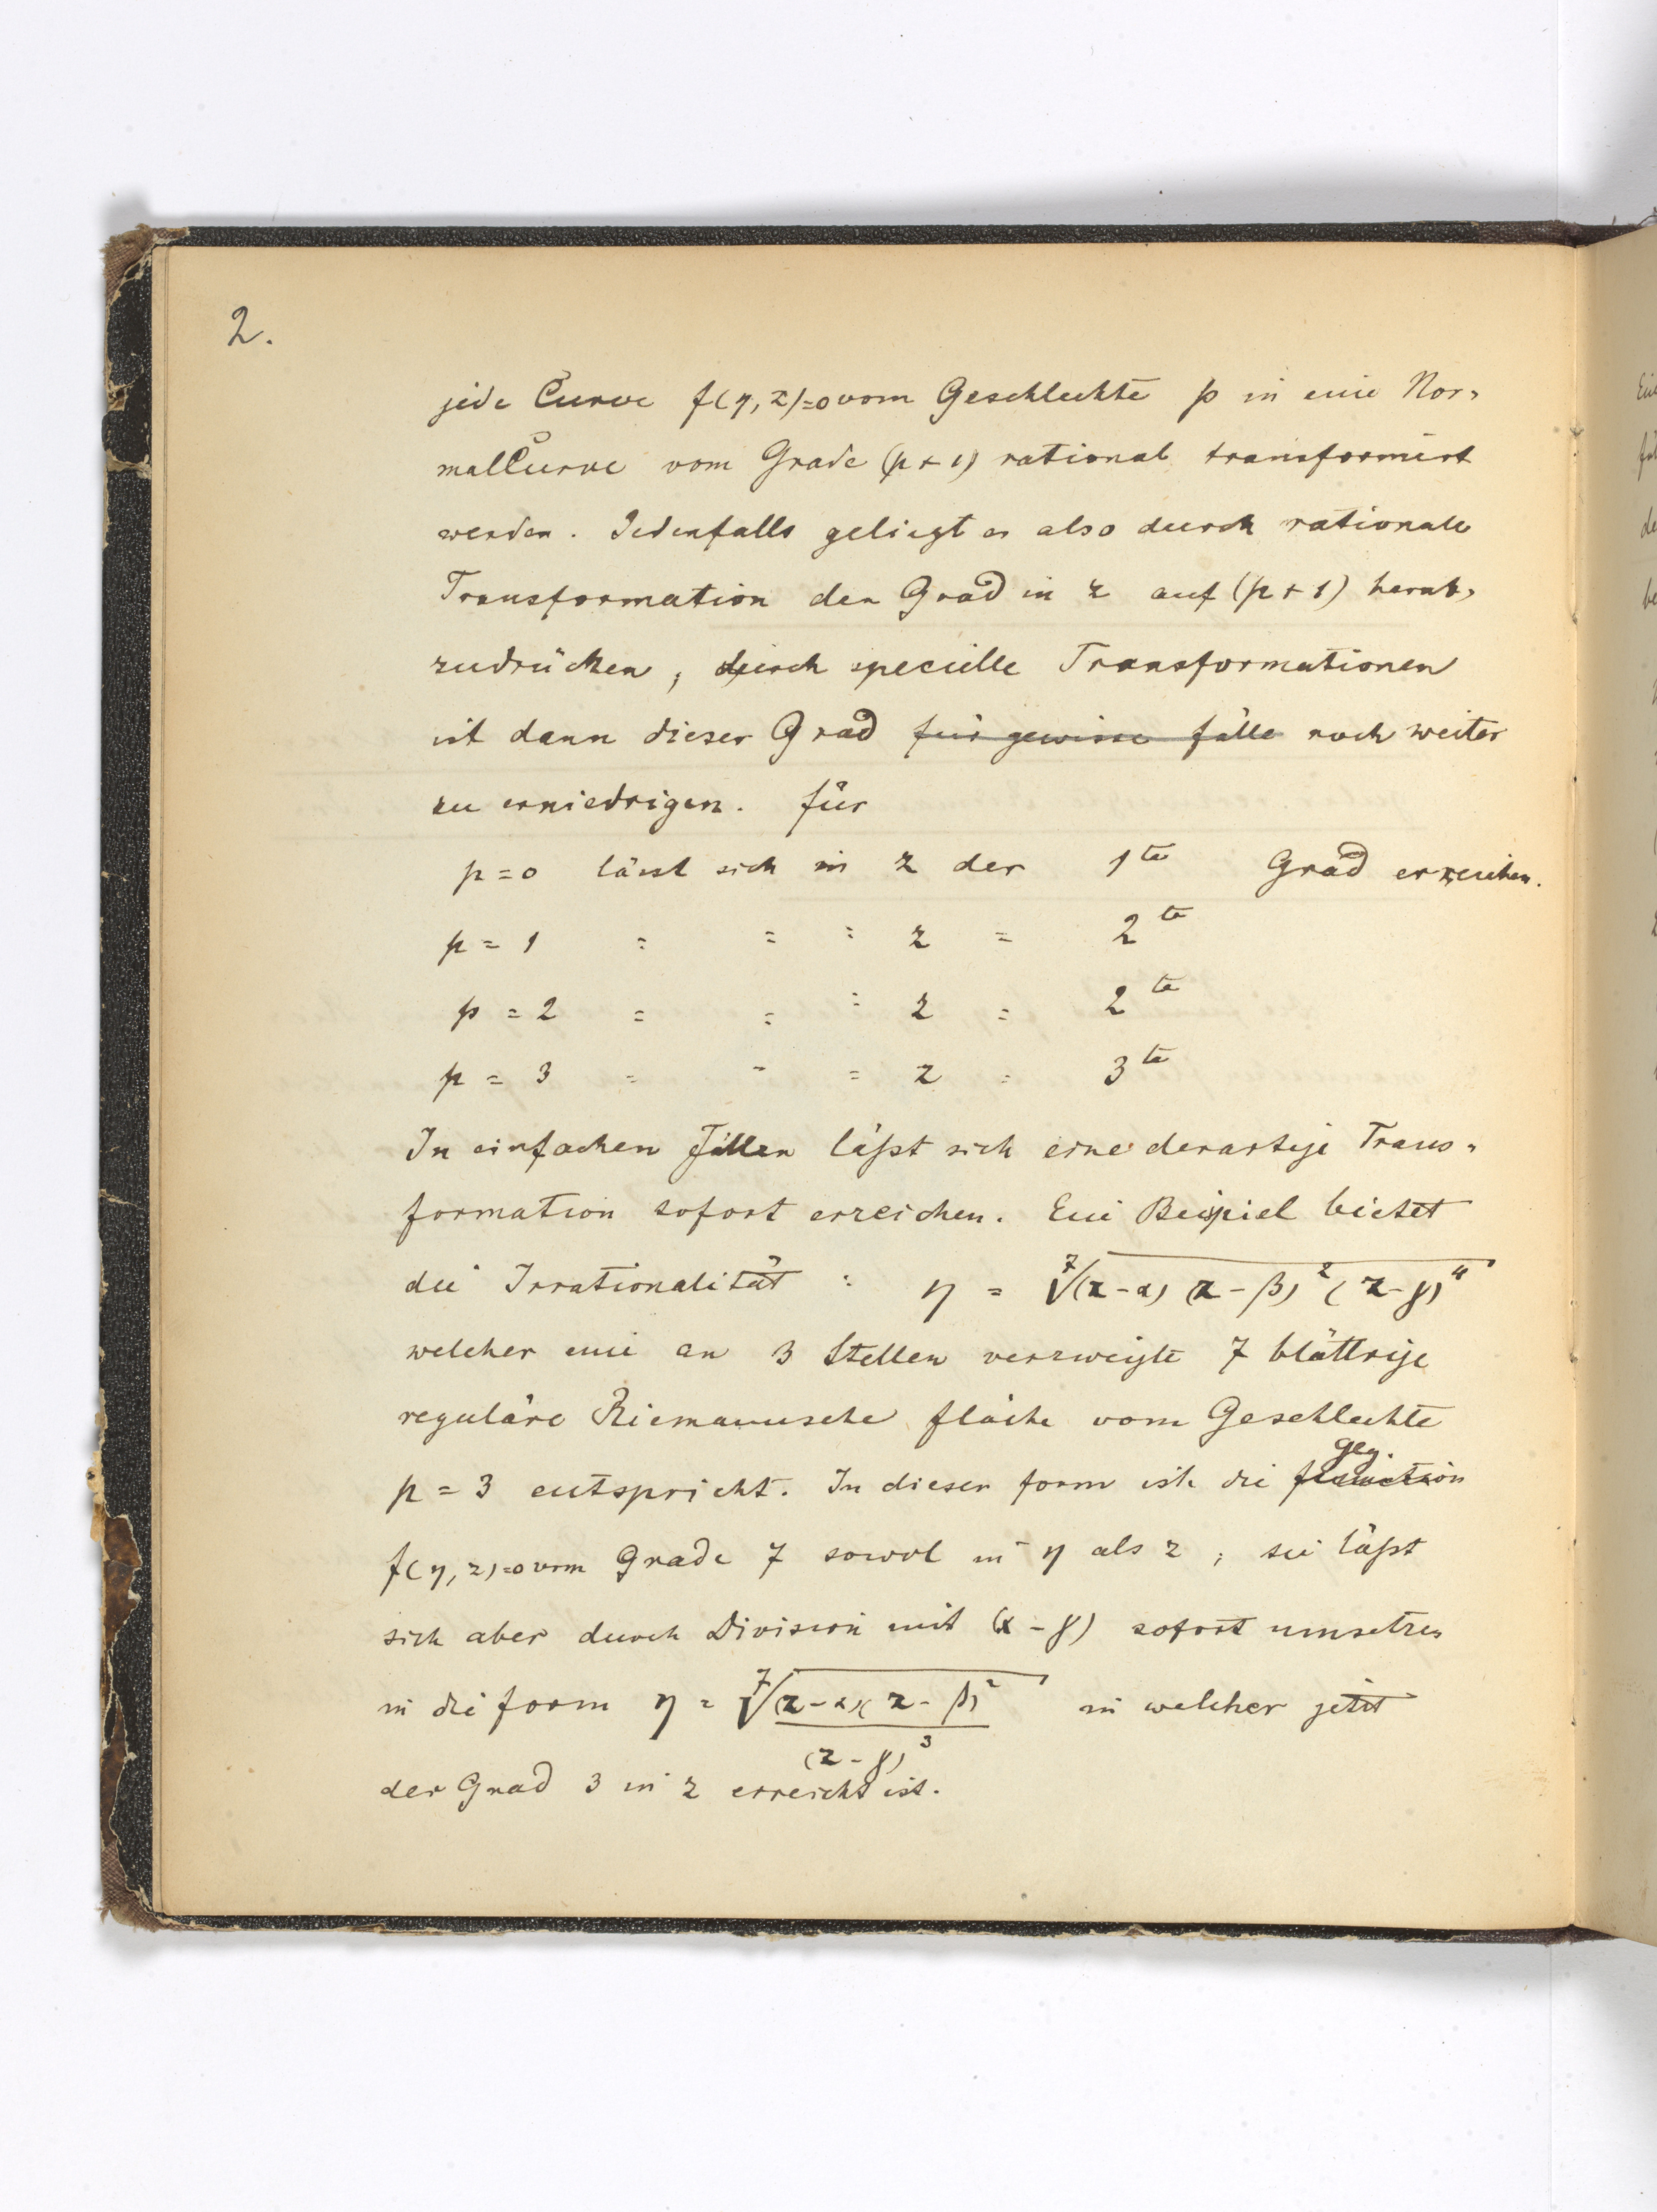 2.
jede Curve f(η, z)=0 vom Geschlechte p in eine Nor=
malCurve vom Grade (p+1) rational transformirt
werden. Jedenfalls geliegt es also durch rationale
Transformation den Grad in z auf (p+1) herab=
zudrücken, durch specielle Transformationen
ist dann dieser Grad für gewisse Fälle noch weiter
zu erniedrigen. Für
p=0 lässt sich in z der 1te Grad erreichen.
p = 1 = = = z = 2te
p = 2 = = = z = 2te
p = 3 = = = z = 3te
In einfachen Fällen läßt sich eine derartige Trans=
formation sofort erreichen. Ein Beispiel bietet
die Irrationalität : η = ⁷√(z-α) (z-β)² (z-γ)⁴
welcher eine an 3 Stellen verzweigte 7 blättrige
reguläre Riemannsche Fläche vom Geschlechte
p = 3 entspricht. In dieser Form ist die function geg.
f(η, z)=0 vom Grade 7 sowol in η als z, sie läßt
sich aber durch Division mit (z-γ) sofort umsetzen
in die Form η = ⁷√(z-α)(z-β)² / (z-γ)³ in welcher jetzt
der Grad 3 in z erreicht ist.